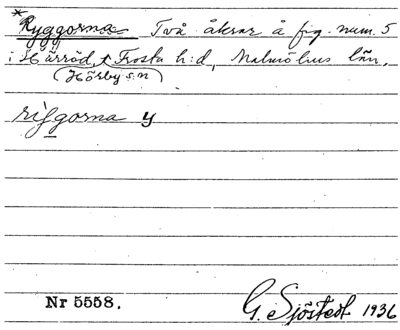 *Ryggorna Två åkrar å fig. num. 5
i Härröd, Frosta h:d, Malmöhus län.
(Hörby s:n)
riggorna y
Nr 5558.
G. Sjöstedt 1936